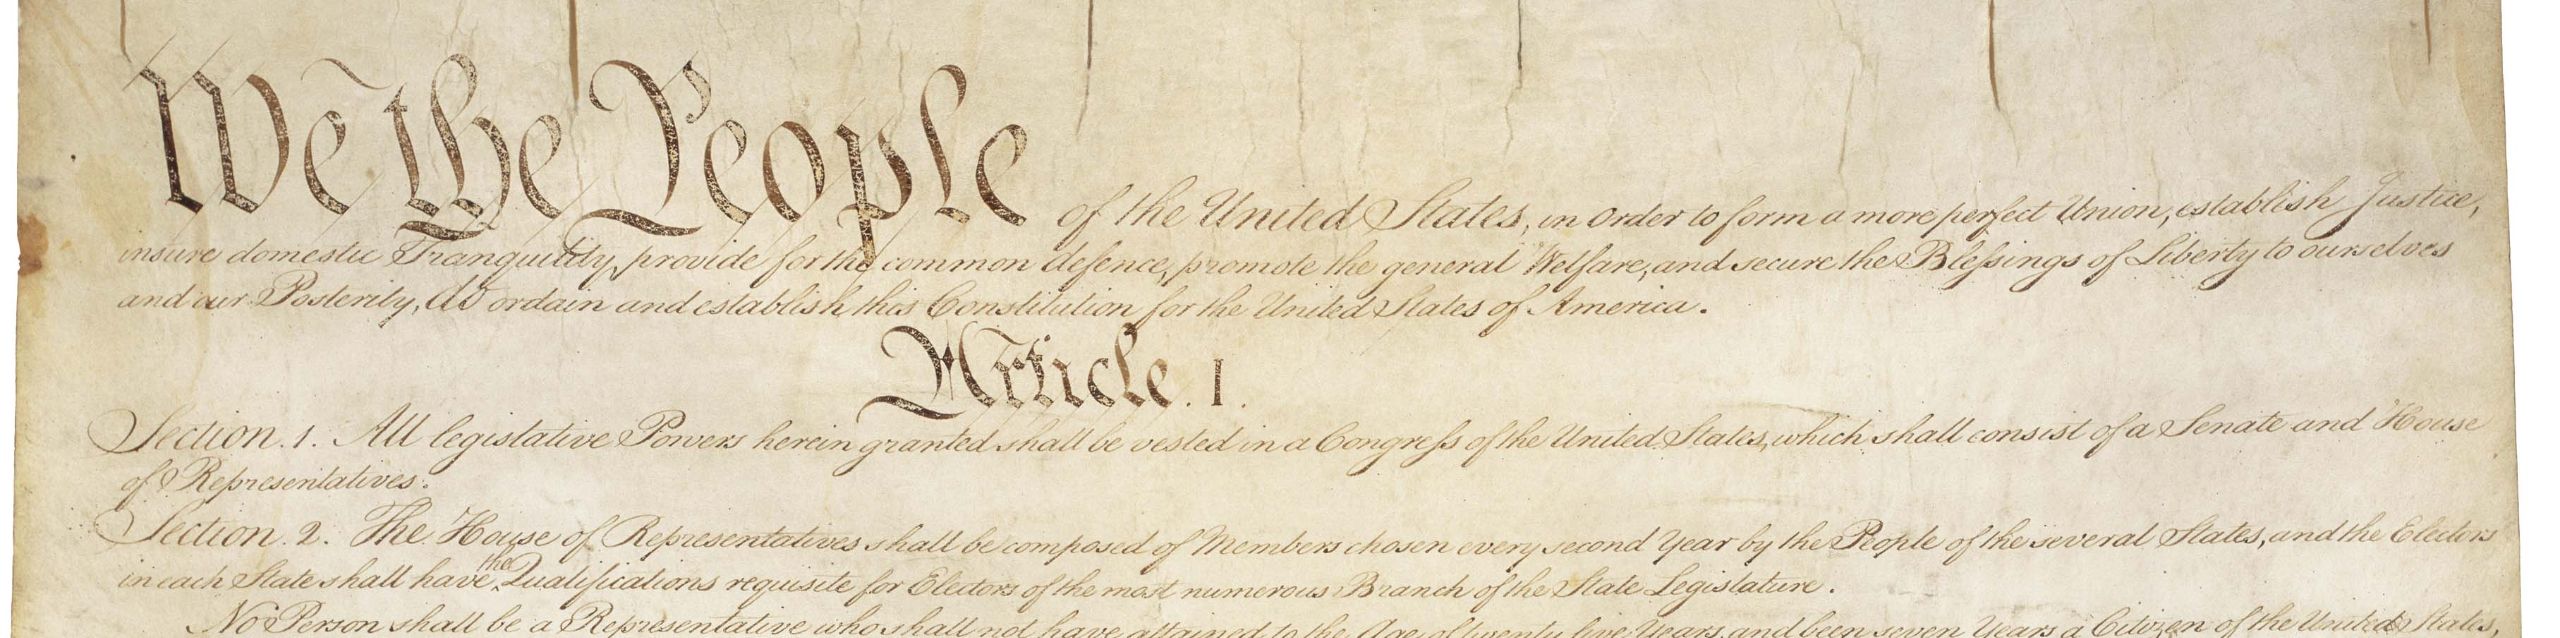 We the People of the United States, in Order to form a more perfect Union, establish Justice,
insure domestic Tranquility, provide for the common defence, promote the general Welfare, and secure the Blessings of Liberty to ourselves
and our Posterity, do ordain and establish this Constitution for the United States of America.
Article. I.
Section. 1. All legislative Powers herein granted shall be vested in a Congress of the United States, which shall consist of a Senate and House
of Representatives.
Section. 2. The House of Representatives shall be composed of Members chosen every second Year by the People of the several States, and the Electors
in each State shall have the Qualifications requisite for Electors of the most numerous Branch of the State Legislature.
No Person shall be a Representative who shall not have attained to the Age of twenty five Years, and been seven Years a Citizen of the United States,